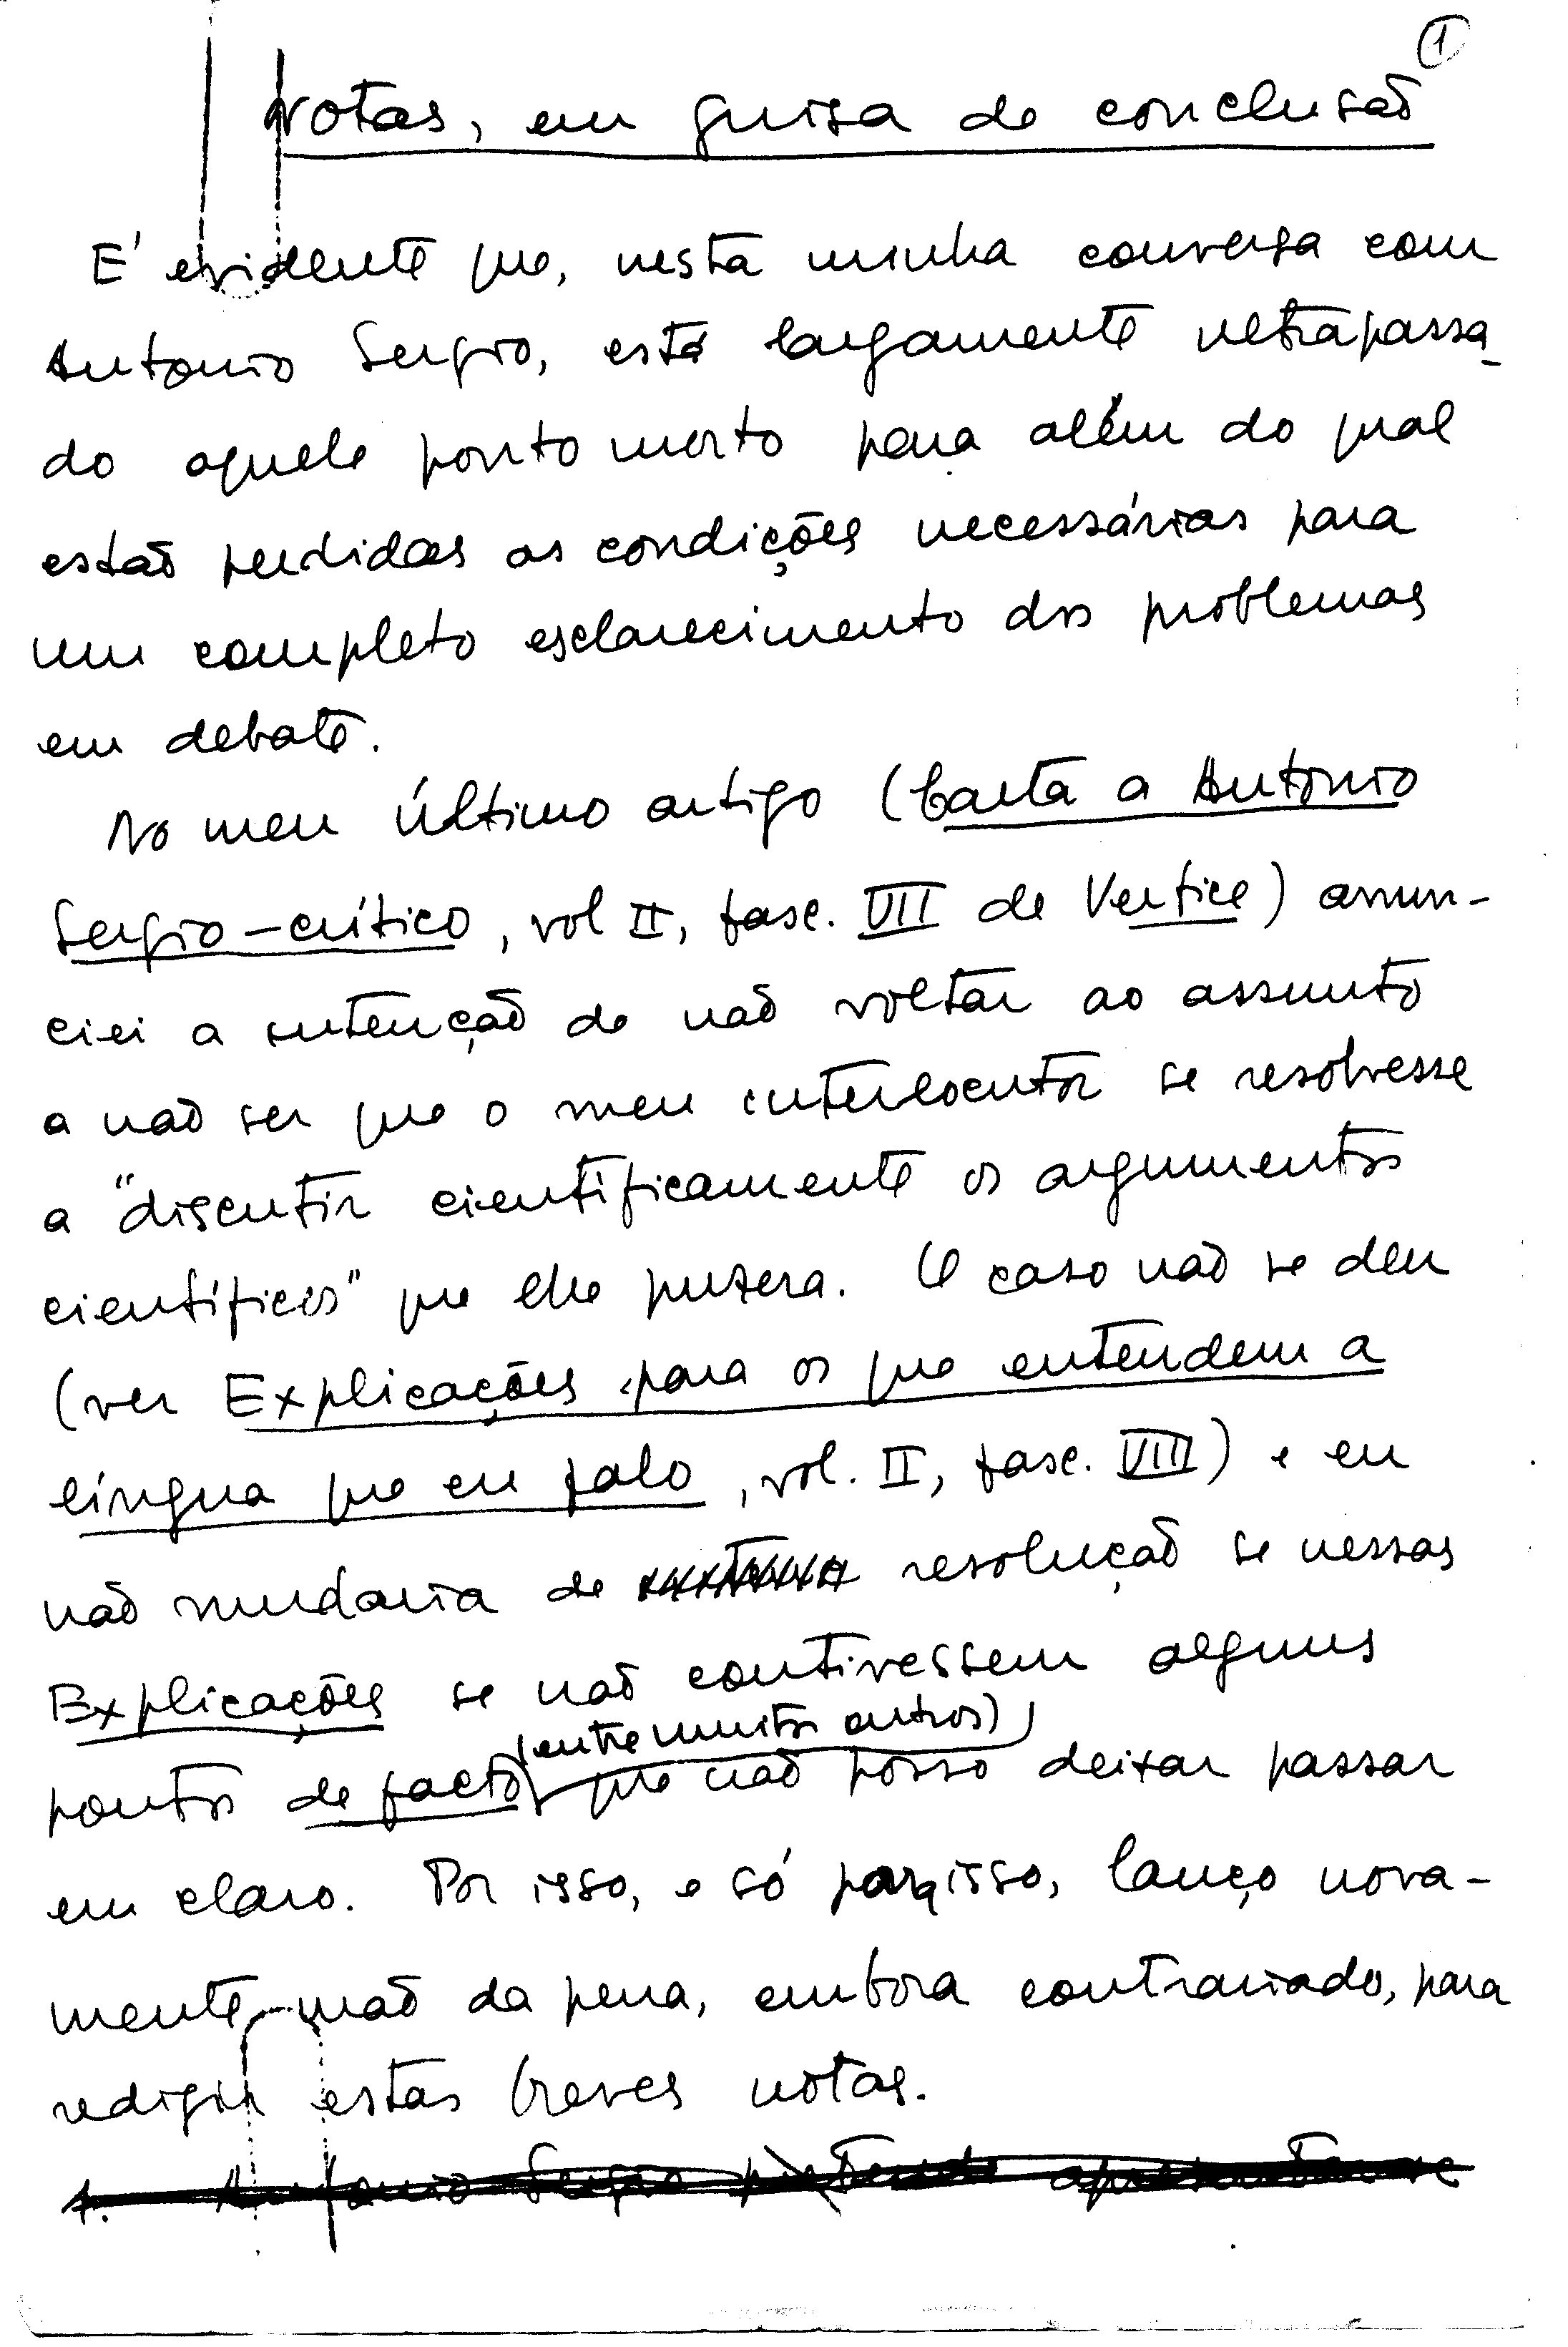 1
Notas, em guisa de conclusão
E' evidente que, nesta minha conversa com
Antonio Sergio, está largamente ultrapassa-
do aquele ponto morto para além do qual
estão perdidas as condições necessárias para
um completo esclarecimento dos problemas
em debate.
No meu último artigo (Carta a Antonio
Sergio-crítico, vol II, fasc. VII de Vertice) anun-
ciei a intenção de não voltar ao assunto
a não ser que o meu interlocutor se resolvesse
a "discutir cientificamente os argumentos
científicos" que lhe pusera. O caso não se deu
(ver Explicações para os que entendem a
língua que eu falo, vol. II, fasc. VIII) e eu
não mudaria de resolução se nessas
Explicações se não contivessem alguns
(entre muitos outros)
pontos de facto que não posso deixar passar
em claro. Por isso, e só para isso, lanço nova-
mente mão da pena, embora contrariado, para
redigir estas breves notas.
1. Antonio Sergio pretende apresentar-se